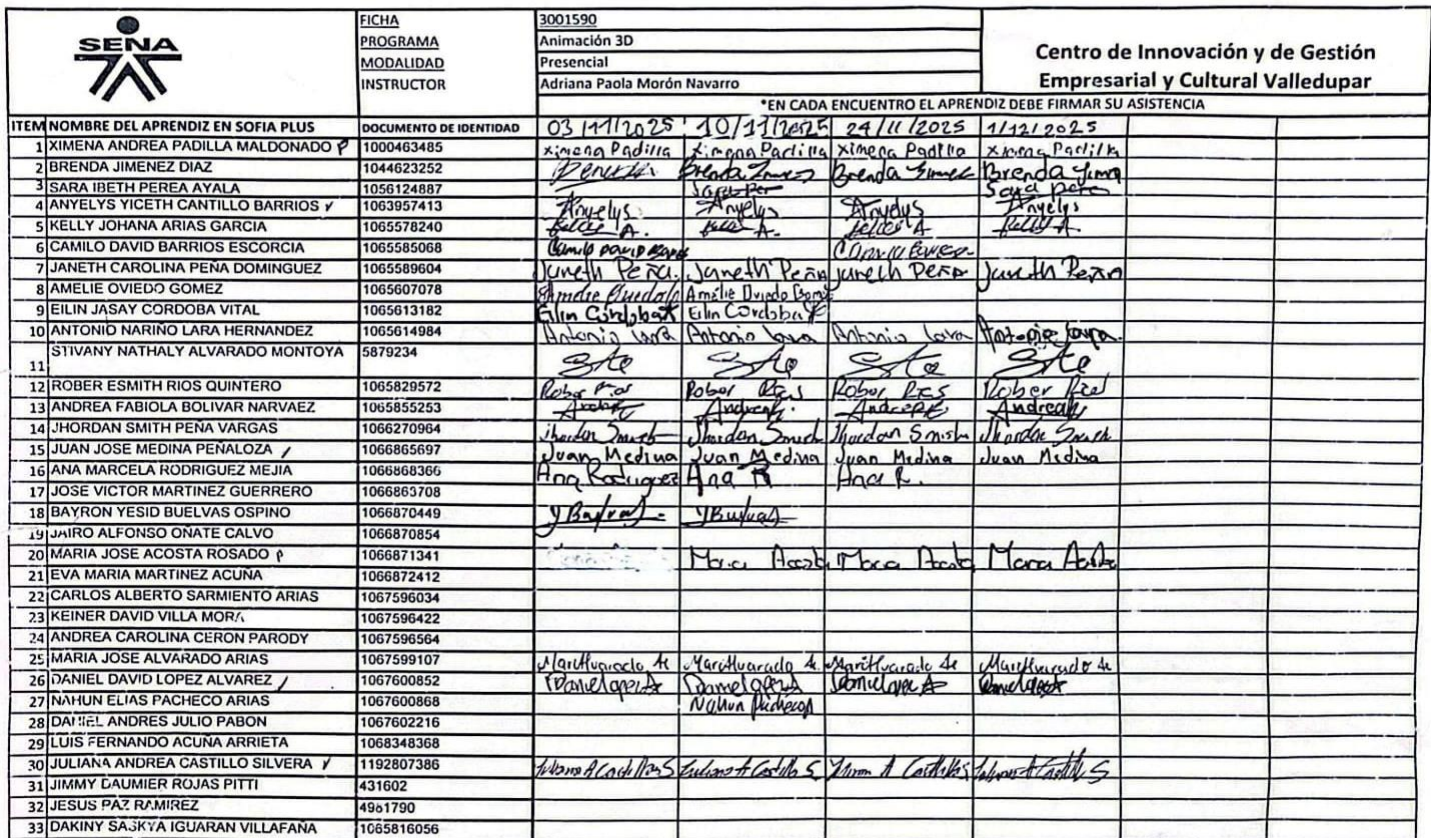 SENA
FICHA 3001590
PROGRAMA Animación 3D
MODALIDAD Presencial
INSTRUCTOR Adriana Paola Morón Navarro
Centro de Innovación y de Gestión
Empresarial y Cultural Valledupar
*EN CADA ENCUENTRO EL APRENDIZ DEBE FIRMAR SU ASISTENCIA
ITEM NOMBRE DEL APRENDIZ EN SOFIA PLUS DOCUMENTO DE IDENTIDAD 03/11/2025 10/11/2025 24/11/2025 1/12/2025
1 XIMENA ANDREA PADILLA MALDONADO 1000463485 Ximena Padilla Ximena Padilla Ximena Padilla Ximena Padilla
2 BRENDA JIMENEZ DIAZ 1044623252 Brenda Brenda Brenda
3 SARA IBETH PEREA AYALA 1056124887 Sara Per Sara pere
4 ANYELYS YICETH CANTILLO BARRIOS 1063957413 Anyelys Anyelys Anyelys Anyelys
5 KELLY JOHANA ARIAS GARCIA 1065578240 Kelly A. Kelly A. Kelly A Kelly A.
6 CAMILO DAVID BARRIOS ESCORCIA 1065585068 Camilo DAVID
7 JANETH CAROLINA PEÑA DOMINGUEZ 1065589604 Janeth Peña. Janeth Peña Janeth Peña Janeth Peña
8 AMELIE OVIEDO GOMEZ 1065607078 Amelie Oviedo Amélie Oviedo
9 EILIN JASAY CORDOBA VITAL 1065613182 Eilin Cordoba Eilin Cordoba
10 ANTONIO NARIÑO LARA HERNANDEZ 1065614984 Antonio Lara Antonio Lara Antonio Lara Antonio Lara
11 STIVANY NATHALY ALVARADO MONTOYA 5879234
12 ROBER ESMITH RIOS QUINTERO 1065829572 Rober Rober Rober Rober
13 ANDREA FABIOLA BOLIVAR NARVAEZ 1065855253 Andrea
14 JHORDAN SMITH PEÑA VARGAS 1066270964 Jhordan Jhordan Jhordan Jhordan
15 JUAN JOSE MEDINA PEÑALOZA 1066865697 Juan Medina Juan Medina Juan Medina Juan Medina
16 ANA MARCELA RODRIGUEZ MEJIA 1066868366 Ana Rodriguez Ana R Ana R.
17 JOSE VICTOR MARTINEZ GUERRERO 1066863708
18 BAYRON YESID BUELVAS OSPINO 1066870449 YBuelvas YBuelvas
19 JAIRO ALFONSO OÑATE CALVO 1066870854
20 MARIA JOSE ACOSTA ROSADO 1066871341 Maria Acosta Maria Acosta Maria Acosta
21 EVA MARIA MARTINEZ ACUÑA 1066872412
22 CARLOS ALBERTO SARMIENTO ARIAS 1067596034
23 KEINER DAVID VILLA MORA 1067596422
24 ANDREA CAROLINA CERON PARODY 1067596564
25 MARIA JOSE ALVARADO ARIAS 1067599107
26 DANIEL DAVID LOPEZ ALVAREZ 1067600852
27 NAHUN ELIAS PACHECO ARIAS 1067600868 Nahun Pacheco
28 DANIEL ANDRES JULIO PABON 1067602216
29 LUIS FERNANDO ACUÑA ARRIETA 1068348368
30 JULIANA ANDREA CASTILLO SILVERA 1192807386 Juliana A Castillo S Juliana A Castillo S
31 JIMMY DAUMIER ROJAS PITTI 431602
32 JESUS PAZ RAMIREZ 4981790
33 DAKINY SASKYA IGUARAN VILLAFAÑA 1065816056